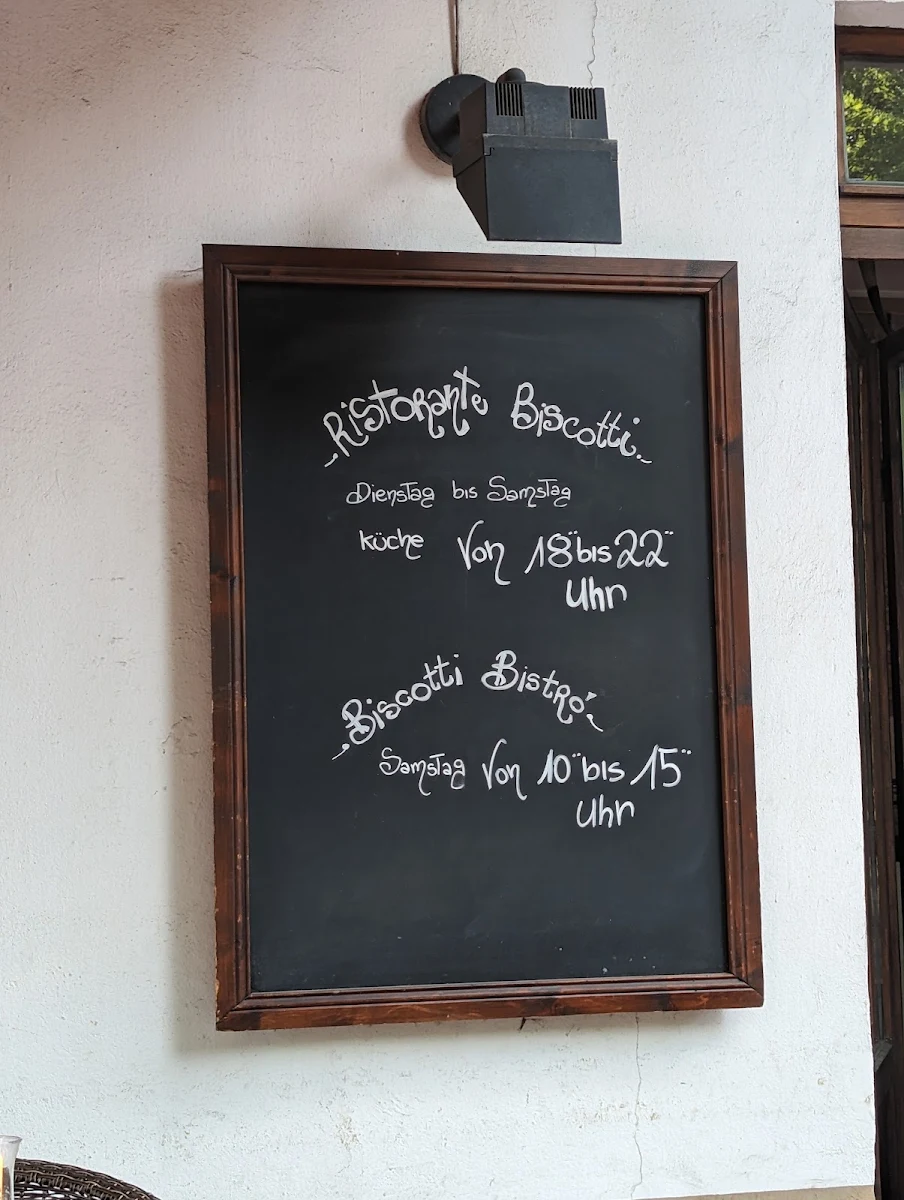 Ristorante Biscotti
Dienstag bis Samstag
Küche von 18°° bis 22°°
Uhr
Biscotti Bistró
Samstag von 10°° bis 15°°
Uhr